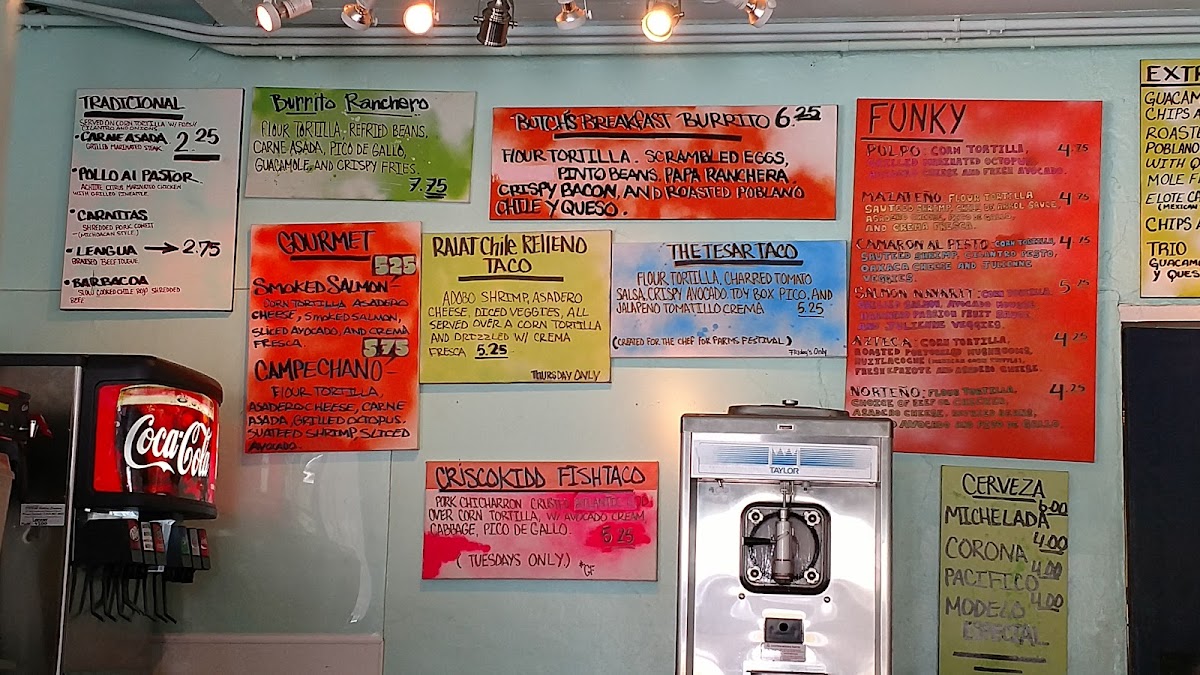 TRADICIONAL
SERVED ON CORN TORTILLA W/ FRESH
CILANTRO AND ONIONS
• CARNE ASADA 2.25
GRILLED MARINATED STEAK
• POLLO Al PASTOR
ACHIOTE CITRUS MARINATED CHICKEN
WITH GRILLED PINEAPPLE.
• CARNITAS
SHREDDED PORK CONFIT
(MICHOACAN STYLE)
• LENGUA → 2.75
BRAISED BEEF TOUGUE
• BARBACOA
SLOW COOKED CHILE ROJO SHREDDED
BEFE
Burrito Ranchero
FLOUR TORTILLA. REFRIED BEANS.
CARNE ASADA, PICO DE GALLO,
GUACAMOLE, AND CRISPY FRIES.
7.75
BUTCH'S BREAKFAST BURRITO 6.25
FLOUR TORTILLA. SCRAMBLED EGGS,
PINTO BEANS. PAPA RANCHERA.
CRISPY BACON, AND ROASTED POBLANO
CHILE Y QUESO.
GOURMET
525
SMOKED SALMON-
CORN TORTILLA ASADERO
CHEESE, SMOKED SALMON,
SLICED AVOCADO, AND CREMA
FRESCA.
575
CAMPECHANO-
FLOUR TORTILLA,
ASADERO CHEESE, CARNE
ASADA, GRILLED OCTOPUS.
SUATEED SHRIMP, SLICED
AVOCADO.
RAJAT Chile RELLENO
TACO
ADOBO SHRIMP, ASADERO
CHEESE, DICED VEGGIES, ALL
SERVED OVER A CORN TORTILLA
AND DRIZZLED W/ CREMA
FRESCA 5.25
THURSDAY ONLY
THE TESAR TACO
FLOUR TORTILLA, CHARRED TOMATO
SALSA, CRISPY AVOCADO. TOY BOX PICO. AND
JALAPENO TOMATILLO CREMA 5.25
(CREATED FOR THE CHEF FOR FARMS FESTIVAL)
FRiday's Only
CRISCOKIDD FISHTACO
PORK CHICHARRON CRUSTED
OVER CORN TORTILLA, W/ AVOCADO CREAM,
CABBAGE, PICO DE GALLO.
5.25
(TUESDAYS ONLY.) *GF
FUNKY
PULPO: CORN TORTILLA, 4.75
GRILLED MARINATED OCTOPUS,
CHEESE AND FRESH AVOCADO.
MAZATEÑO FLOUR TORTILLA 4.75
SAUTEED SHRIMP, CHILE DE ARBOL SAUCE,
AND CREMA FRESCA.
CAMARON AL PESTO: CORN TORTILLA, 4.75
SAUTEED SHRIMP, CILANTRO PESTO,
OAXACA CHEESE AND JULIENNE
VEGGIES.
SALMON NAYARIT: CORN TORTILLA, 5.75
PASSION FRUIT SAUCE
AND JULIENNE VEGGIES.
AZTECA: CORN TORTILLA, 4.25
ROASTED PORTOBELLO MUSHROOMS,
HUITLACOCHE
FRESH EPAZOTE AND ASADERO CHEESE.
NORTEÑO: FLOUR TORTILLA, 4.25
CHOICE OF BEEF OR CHICKEN,
ASADERO CHEESE, REFRIED BEANS,
AVOCADO AND PICO DE GALLO.
EXTR
GUACAM
CHIPS A
ROAST
POBLAN
WITH Q
MOLE F
ELOTE CA
(MEXICAN
CHIPS A
TRIO
GUACAM
Y QUES
CERVEZA
6.00
MICHELADA
4.00
CORONA
4.00
PACIFICO
4.00
MODELO
ESPECIAL
Coca-Cola
TAYLOR